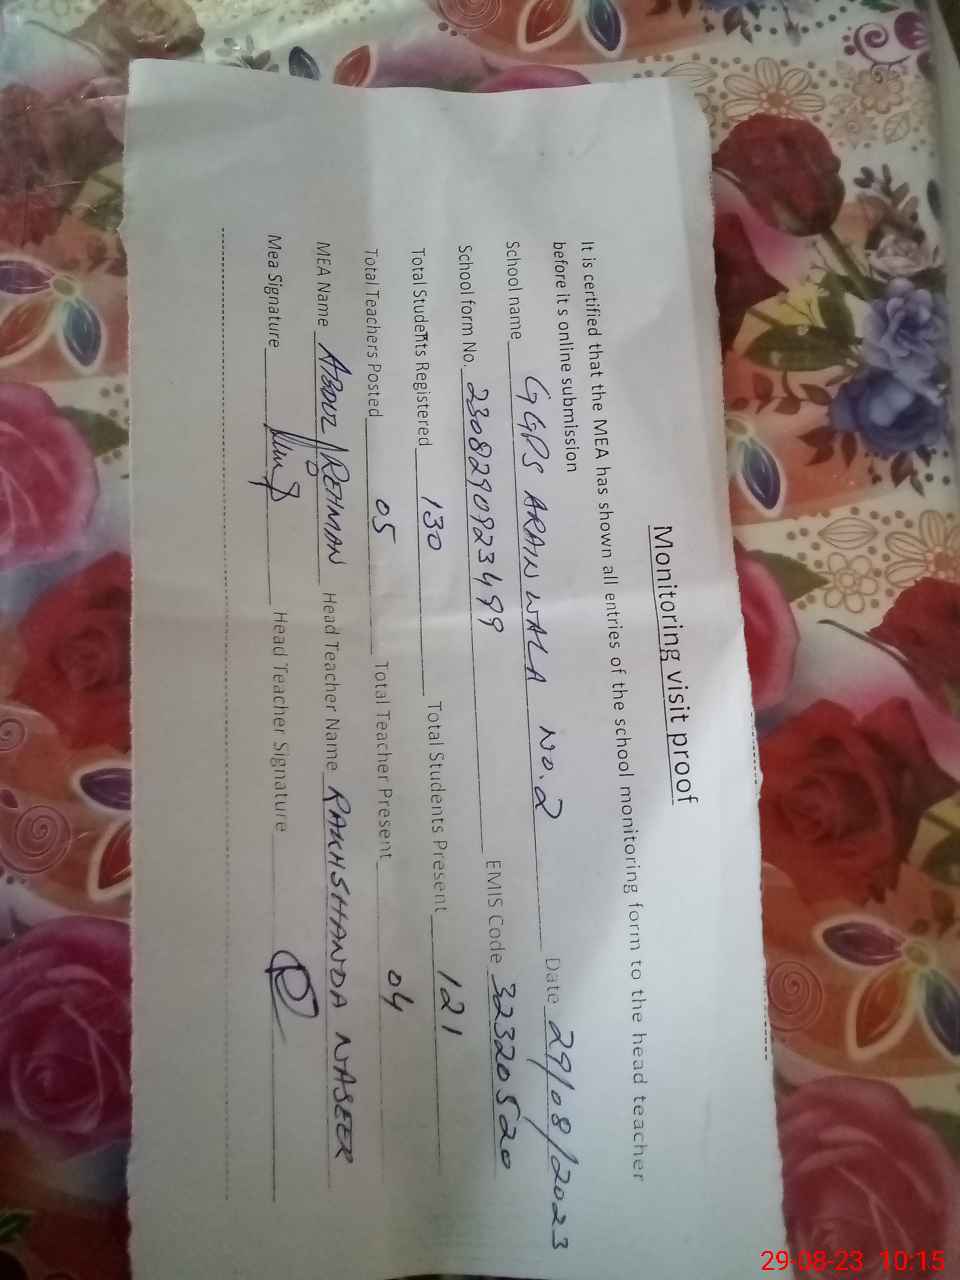 Monitoring visit proof
It is certified that the MEA has shown all entries of the school monitoring form to the head teacher
before its online submission
School name GGPS ARAIN WALA NO.2 Date 29/08/2023
School form No. 2308290923499 EMIS Code 32320520
Total Students Registered 130 Total Students Present 121
Total Teachers Posted 05 Total Teacher Present 04
MEA Name ABDUL REHMAN Head Teacher Name RAKHSHANDA NASEER
Mea Signature Head Teacher Signature
29-08-23 10:15